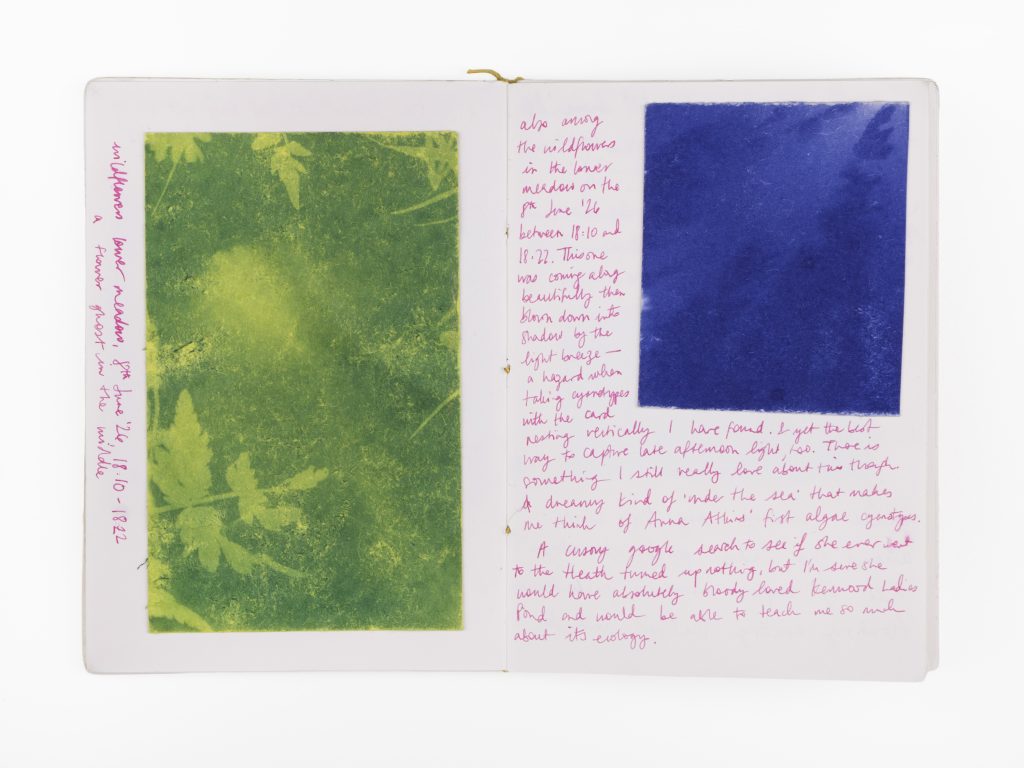 wildflowers lower meadow, 8th June '26, 18.10 - 18.22
a flower ghost in the middle
also among
the wildflowers
in the lower
meadow on the
8th June '26
between 18.10 and
18.22. This one
was coming along
beautifully then
blown down into
shadow by the
light breeze —
a hazard when
taking cyanotypes
with the card
resting vertically I have found. & yet the best
way to capture late afternoon light, too. There is
something I still really love about this though.
A dreamy kind of 'under the sea' that makes
me think of Anna Atkins' first algae cyanotypes.
A cursory google search to see if she ever went
to the Heath turned up nothing, but I'm sure she
would have absolutely bloody loved Kenwood Ladies
Pond and would be able to teach me so much
about its ecology.